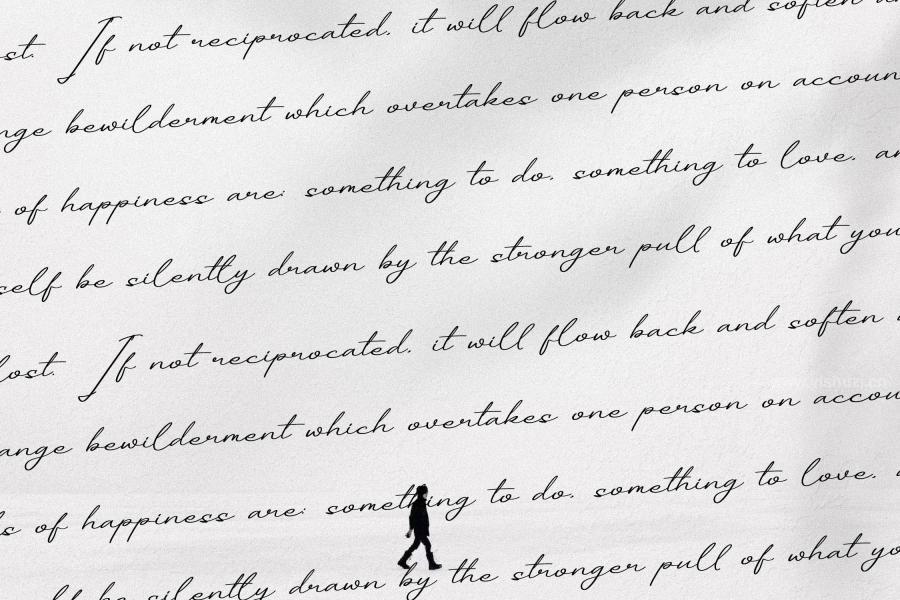 st. If not reciprocated, it will flow back and soften a
nge bewilderment which overtakes one person on accoun
of happiness are: something to do, something to love, an
self be silently drawn by the stronger pull of what you
lost. If not reciprocated, it will flow back and soften
ange bewilderment which overtakes one person on accou
s of happiness are: something to do, something to love,
be silently drawn by the stronger pull of what yo